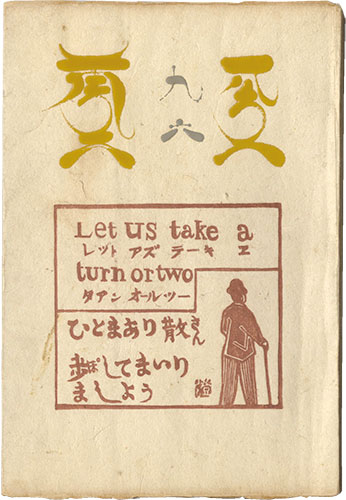 九
六
Let us take a
レット アズ テーキ ヱ
turn or two
タアン オールツー
ひとまあり散さん
歩ぽしてまいり
ましよう